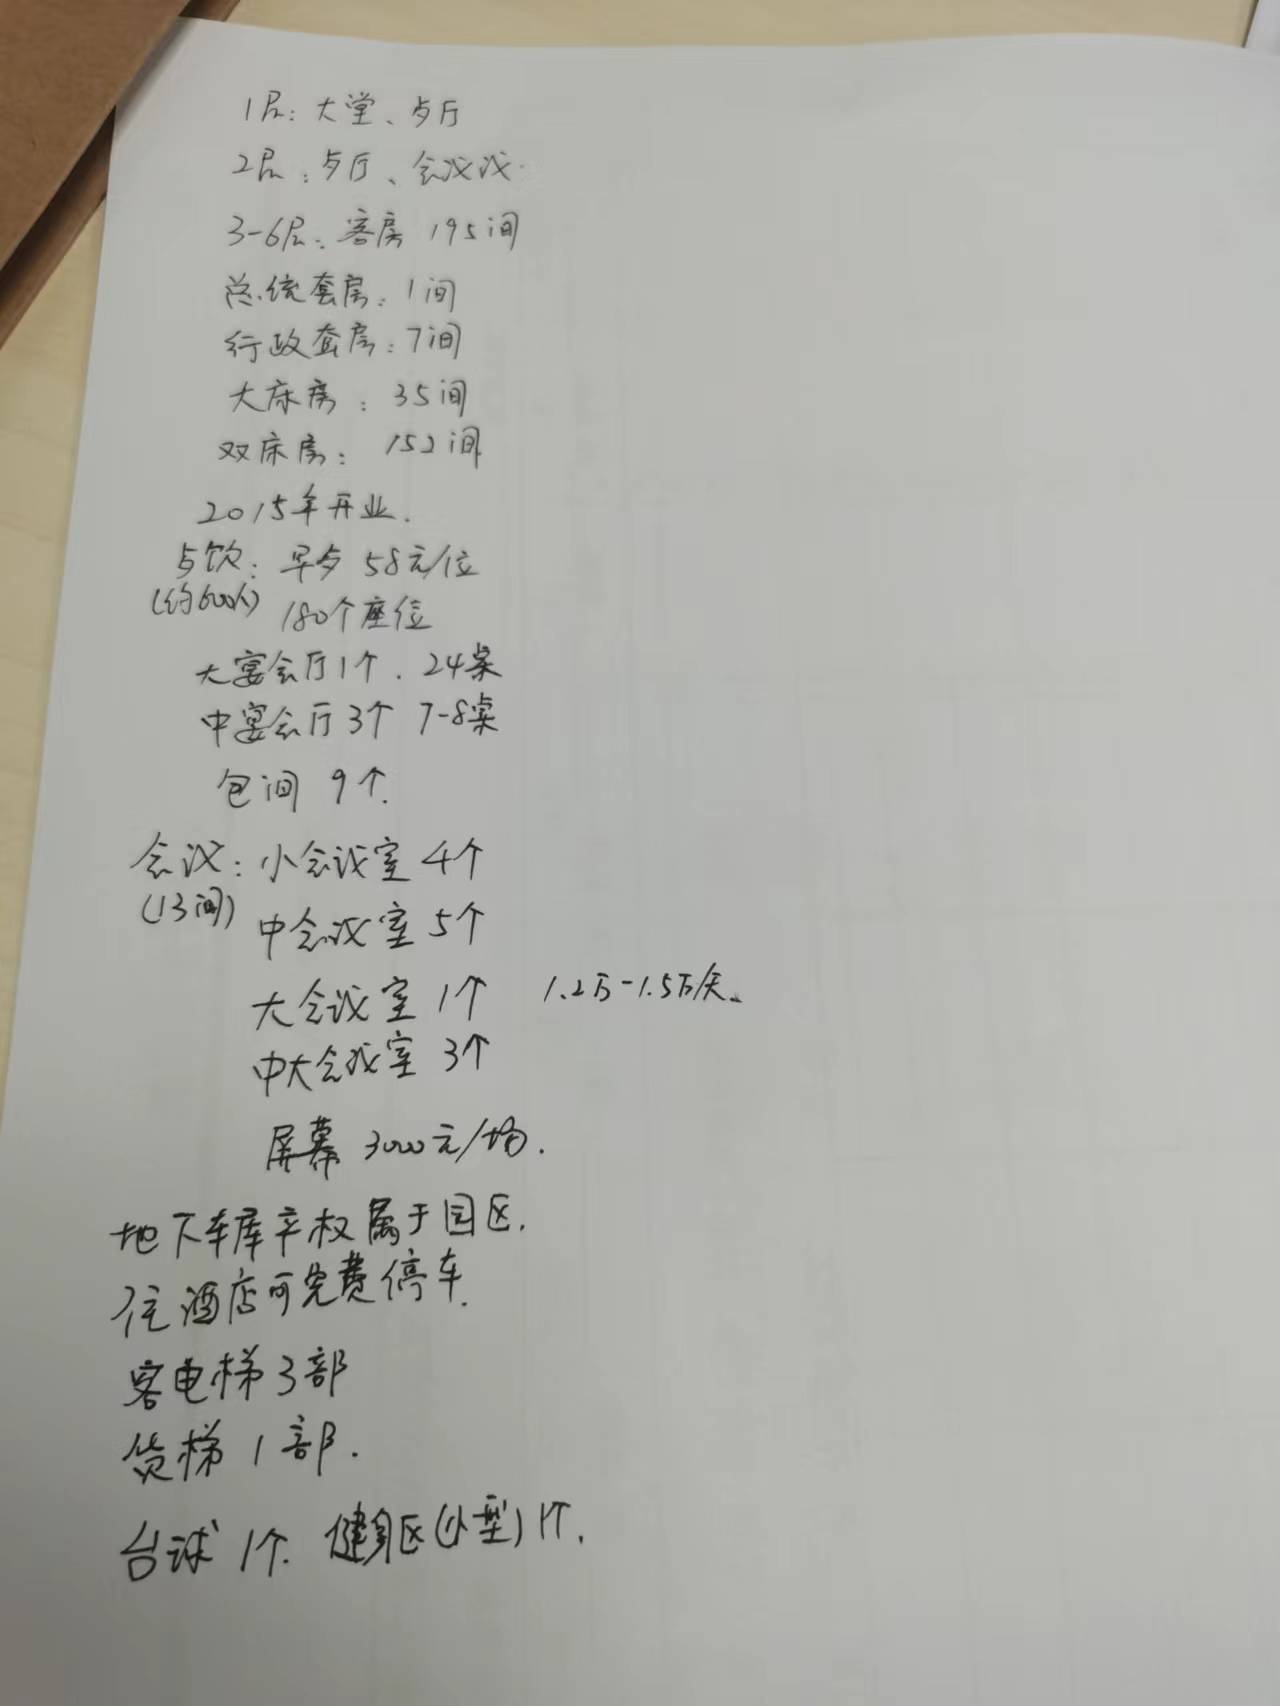 1层：大堂、歺厅
2层：歺厅、会议
3-6层：客房 195间
总统套房：1间
行政套房：7间
大床房：35间
双床房：152间
2015年开业.
歺饮：早歺 58元/位
(约600人) 180个座位
大宴会厅1个. 24桌
中宴会厅3个 7-8桌
包间 9个.
会议：小会议室 4个
(13间) 中会议室 5个
大会议室 1个 1.2万-1.5万/天.
中大会议室 3个
屏幕 3000元/场.
地下车库产权属于园区.
住酒店可免费停车.
客电梯3部
货梯 1部.
台球 1个. 健身区(小型) 1个.